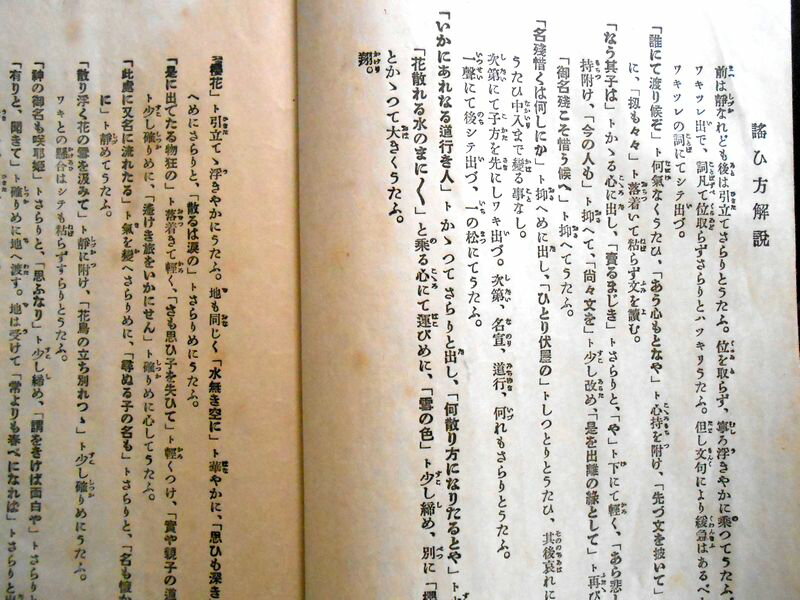 謠ひ方解說
前は靜なれども後は引立てさらりとうたふ。位を取らず、寧ろ浮きやかに乘つてうたふ。
ワキツレ出で、詞凡て位取らずさらりとハワキリうたふ。但し文句により緩急はあるべ
ワキツレの詞にてシテ出づ。
「誰にて渡り候ぞ」ト何氣なくうたひ、「あう心もとなや」ト心持を附け、「先づ文を披いて」
に、「扨も々々」ト落着いて粘らず文を讀む。
「なう其子は」トかゝる心に出し、「賣るまじき」トさらりと、「や」ト下にて輕く、「あら悲
持附け、「今の人も」ト抑へて、「尙々文を」ト少し改め、「是を出離の緣として」ト再び
「御名殘こそ惜う候へ」ト抑へてうたふ。
「名殘惜くは何しにか」ト抑へめに出し、「ひとり伏屋の」トしつとりとうたひ、其後哀れに
うたひ中入まで變る事なし。
次第にて子方を先にしワキ出づ。次第、名宣、道行、何れもさらりとうたふ。
一聲にて後シテ出づ、一の松にてうたふ。
「いかにあれなる道行き人」トかゝつてさらりと出し、「何散り方になりたるとや」ト
「花散れる水のまに〱」と乘る心にて運びめに、「雲の色」ト少し締め、別に「櫻
とかゝつて大きくうたふ。
翔。
「櫻花」ト引立てゝ浮きやかにうたふ。地も同じく「水無き空に」ト華やかに、「思ひも深き
へめにさらりと、「散るは淚の」トさらりめにうたふ。
「是に出てたる物狂の」ト落着きて輕く、「さも思ひ子を失ひて」ト輕くつけ、「實や親子の道
ト少し確りめに、「遙けき旅をいかにせん」ト確りめに心してうたふ。
「此處に又名に流れたる」ト氣を變へさらりめに、「尋ぬる子の名も」トさらりと、「名も懷か
に」ト靜めてうたふ。
「散り浮く花の雪を汲みて」ト靜に附け、「花鳥の立ち別れつゝ」ト少し確りめにうたふ。
ワキとの懸合はシテも粘らずすらりとうたふ。
「神の御名も咲耶姬」トさらりと、「思ふなり」ト少し締め、「謂をきけば面白や」トさらりト
「有りと、聞きて」ト確りめに地へ渡す。地は受けて「常よりも春べになれば」トさらりと出